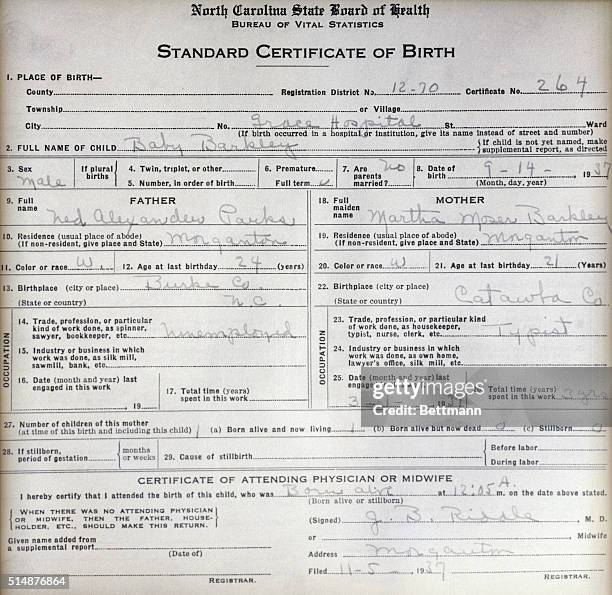 North Carolina State Board of Health
BUREAU OF VITAL STATISTICS
STANDARD CERTIFICATE OF BIRTH
1. PLACE OF BIRTH—
County Registration District No. 12-70 Certificate No. 264
Township or Village
City No. Grace Hospital St. Ward
(If birth occurred in a hospital or institution, give its name instead of street and number)
2. FULL NAME OF CHILD Baby Barkley { If child is not yet named, make supplemental report, as directed
3. Sex Male If plural births { 4. Twin, triplet, or other 5. Number, in order of birth 6. Premature Full term 7. Are parents married? No 8. Date of birth 9-14- 1937 (Month, day, year)
FATHER
9. Full name Ned Alexander Parks
10. Residence (usual place of abode) (If non-resident, give place and State) Morganton
11. Color or race W. 12. Age at last birthday 24 (years)
13. Birthplace (city or place) Burke Co.
(State or country) N.C.
OCCUPATION
14. Trade, profession, or particular kind of work done, as spinner, sawyer, bookkeeper, etc. Unemployed
15. Industry or business in which work was done, as silk mill, sawmill, bank, etc.
16. Date (month and year) last engaged in this work 19 17. Total time (years) spent in this work
MOTHER
18. Full maiden name Martha Moser Barkley
19. Residence (usual place of abode) (If non-resident, give place and State) Morganton
20. Color or race W 21. Age at last birthday 21 (Years)
22. Birthplace (city or place) Catawba Co
(State or country)
OCCUPATION
23. Trade, profession, or particular kind of work done, as housekeeper, typist, nurse, clerk, etc. Typist
24. Industry or business in which work was done, as own home, lawyer's office, silk mill, etc.
25. Date (month and year) last engaged 1937 Total time (years) spent in this work 2 yrs
27. Number of children of this mother (at time of this birth and including this child) (a) Born alive and now living 1 (b) Born alive but now dead 0 (c) Stillborn 0
28. If stillborn, period of gestation { months or weeks 29. Cause of stillbirth { Before labor During labor
CERTIFICATE OF ATTENDING PHYSICIAN OR MIDWIFE
I hereby certify that I attended the birth of this child, who was Born alive at 12:05 A. m. on the date above stated.
(Born alive or stillborn)
{ WHEN THERE WAS NO ATTENDING PHYSICIAN OR MIDWIFE, THEN THE FATHER, HOUSEHOLDER, ETC., SHOULD MAKE THIS RETURN. }
(Signed) J. B. Riddle M. D.
or Midwife
Given name added from a supplemental report
(Date of)
Address Morganton
Filed 11-5 1937
REGISTRAR. REGISTRAR.
gettyimages
Bettmann
514876864